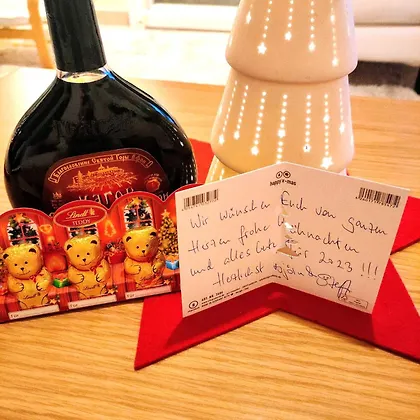 Благословение Святой Горы Афон
Lindt
TEDDY
happy x-mas
Wir wünschen Euch von ganzem
Herzen frohe Weihnachten
und alles Gute für 2023 !!!
Herzlichst